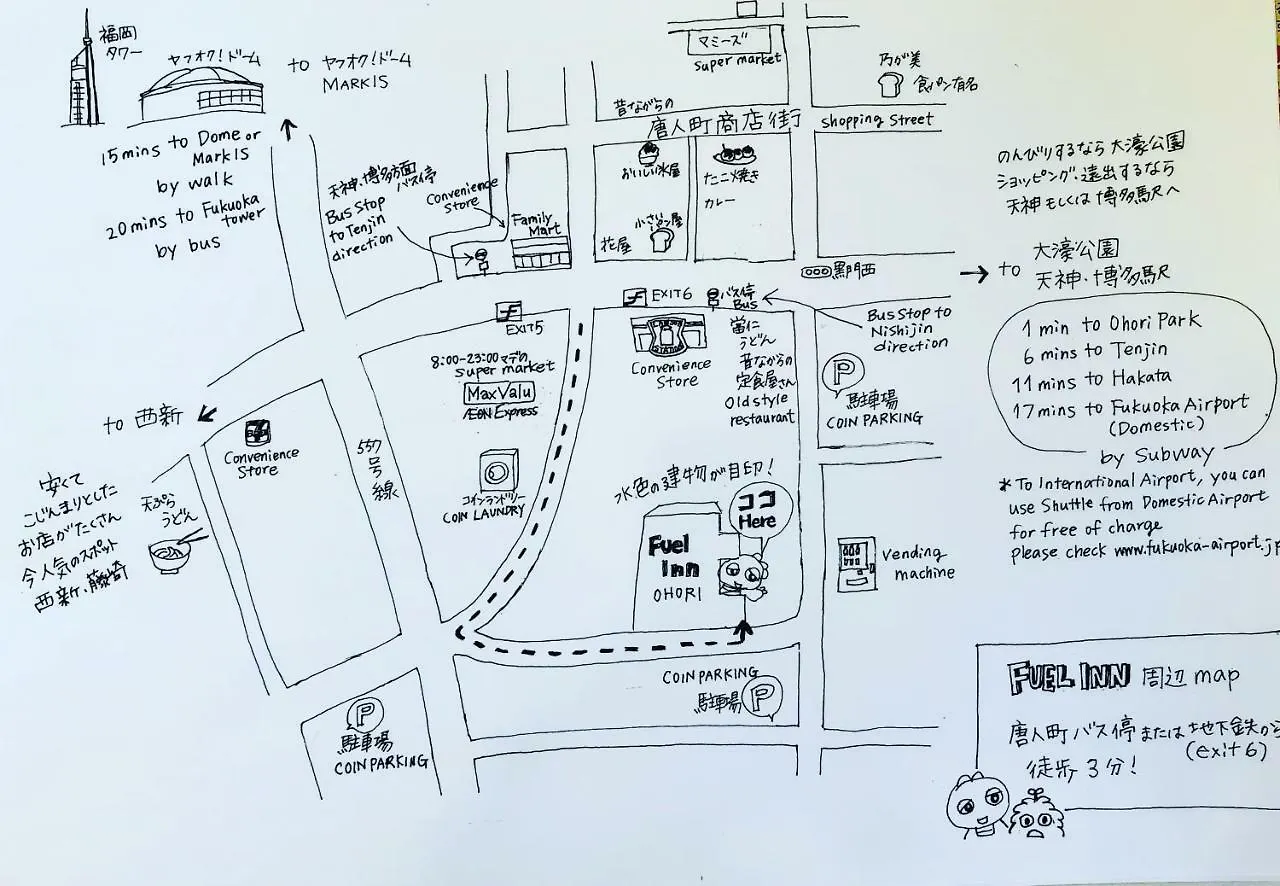 福岡
タワー
ヤフオク!ドーム
to ヤフオク!ドーム
MARKIS
15 mins to Dome or
MarkIS
by walk
20 mins to Fukuoka
tower
by bus
マミーズ
super market
乃が美
食パン有名
昔ながらの
唐人町商店街
shopping Street
天神・博多方面
バス停
Bus Stop
to Tenjin
direction
Convenience
Store
Family
Mart
おいしい氷屋
たこ焼き
カレー
小さいパン屋
花屋
黒門西
のんびりするなら 大濠公園
ショッピング・遠出するなら
天神 もしくは 博多駅へ
to 大濠公園
天神・博多駅
1 min to Ohori Park
6 mins to Tenjin
11 mins to Hakata
17 mins to Fukuoka Airport
(Domestic)
by Subway
* To International Airport, you can
use Shuttle from Domestic Airport
for free of charge
please check www.fukuoka-airport.jp
EXIT5
EXIT6
バス停
Bus
Bus Stop to
Nishijin
direction
8:00-23:00マデの
super market
MaxValu
ÆON Express
STATION
Convenience
Store
当仁
うどん
昔ながらの
定食屋さん
Old style
restaurant
P
駐車場
COIN PARKING
to 西新
Convenience
Store
557号線
コインランドリー
COIN LAUNDRY
水色の建物が目印!
ココ
Here
Fuel
Inn
OHORI
Vending
machine
安くて
こじんまりとした
お店がたくさん
今人気のスポット
西新、藤崎
天ぷら
うどん
COIN PARKING
駐車場 P
P
駐車場
COIN PARKING
FUEL INN 周辺 map
唐人町 バス停 または 地下鉄から
(exit 6)
徒歩 3分!